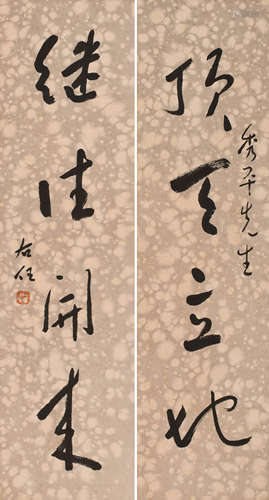 顶天立地
秀平先生
继往开来
右任